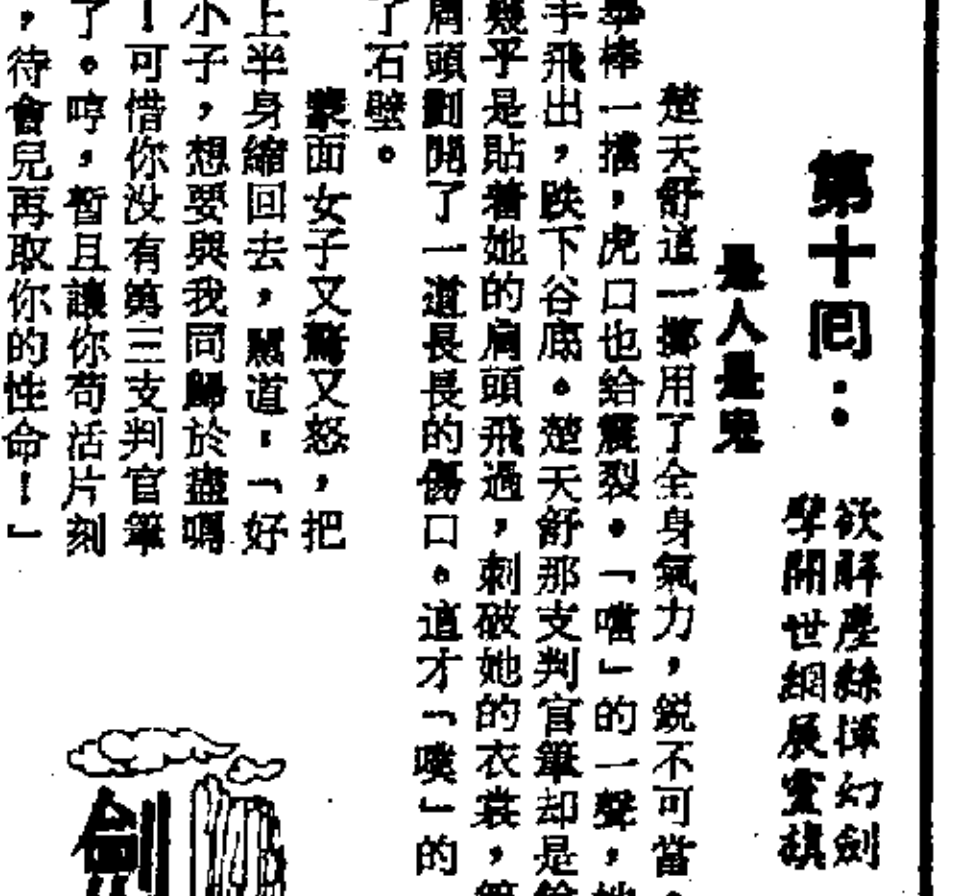 第十回：
欲解塵絲揮幻劍
擘開世網展靈旗
是人是鬼
楚天舒這一擲用了全身氣力，銳不可當。
學棒一擋，虎口也給震裂。「噹」的一聲，她
手飛出，跌下谷底。楚天舒那支判官筆却是
幾乎是貼着她的肩頭飛過，刺破她的衣裳，
肩頭劃開了一道長長的傷口。這才「噗」的
了石壁。
蒙面女子又驚又怒，把
上半身縮回去，罵道：「好
小子，想要與我同歸於盡嗎
！可惜你没有第三支判官筆
了。哼，暫且讓你苟活片刻
，待會兒再取你的性命！」
劍